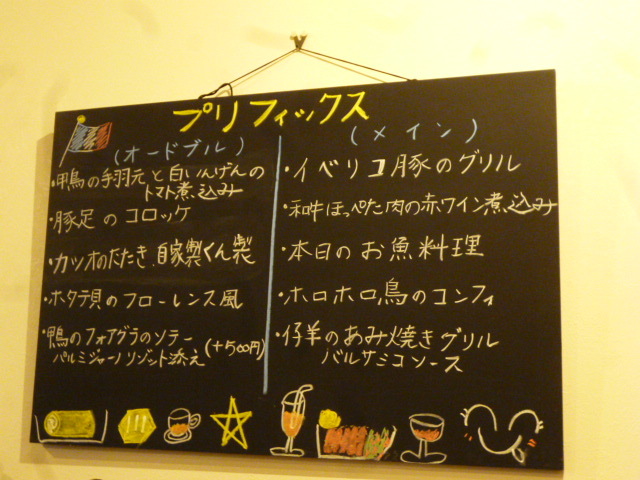 プリフィックス
(オードブル)
・鴨の手羽元と白いんげんの
トマト煮込み
・豚足のコロッケ
・カツオのたたき 自家製くん製
・ホタテ貝のフローレンス風
・鴨のフォアグラのソテー
パルミジャーノリゾット添え (+500円)
(メイン)
・イベリコ豚のグリル
・和牛ほっぺた肉の赤ワイン煮込み
・本日のお魚料理
・ホロホロ鳥のコンフィ
・仔羊のあみ焼きグリル
バルサミコソース